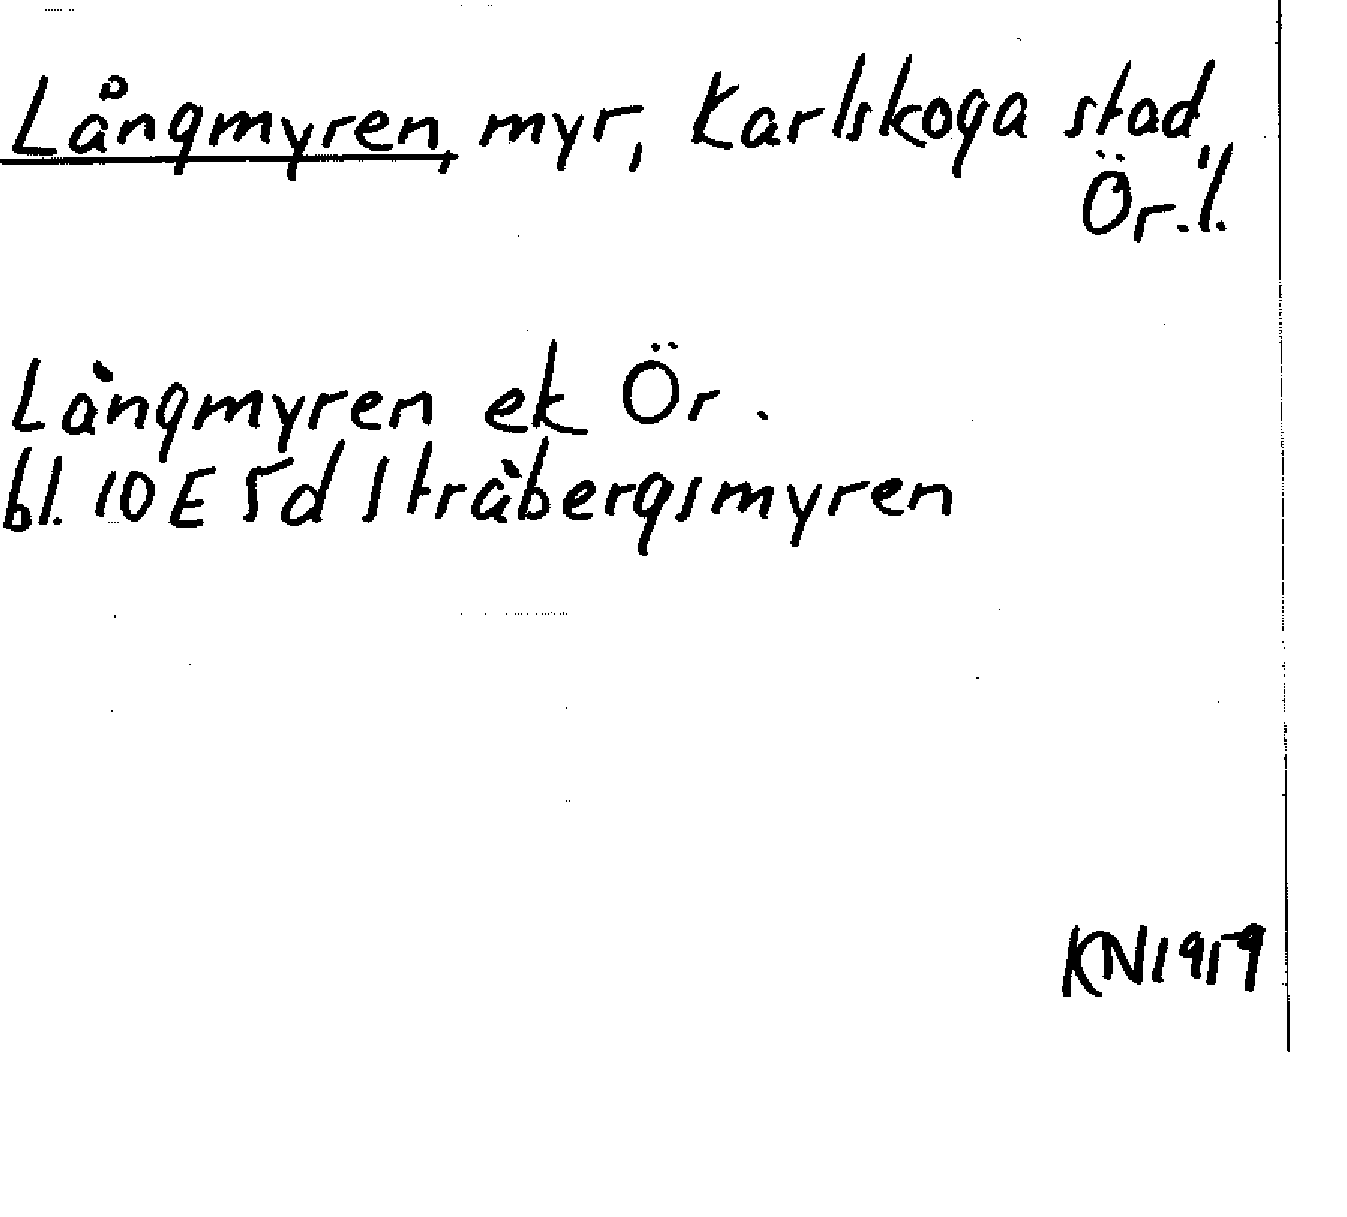 Långmyren, myr, Karlskoga stad,
Ör.l.
Långmyren ek Ör.
bl. 10E 5d Stråbergsmyren
KN1959